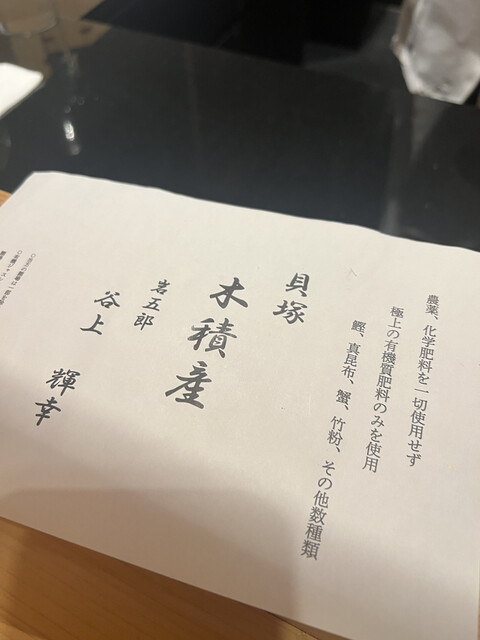 農薬、化学肥料を一切使用せず
極上の有機質肥料のみを使用
鰹、真昆布、蟹、竹粉、その他数種類
貝塚
木積産
岩五郎
谷上 輝幸